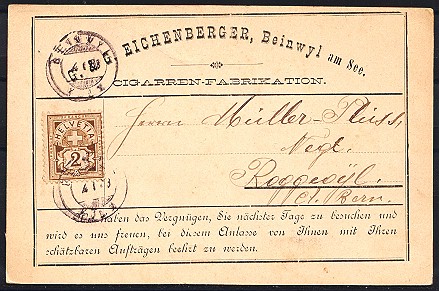 EICHENBERGER, Beinwyl am See.
CIGARREN-FABRIKATION.
HELVETIA
2
Herrn Müller-Pluss,
Negt.
Roggwyl.
Ct. Bern.
haben das Vergnügen, Sie nächster Tage zu besuchen und
wird es uns freuen, bei diesem Anlasse von Ihnen mit Ihren
schätzbaren Aufträgen beehrt zu werden.